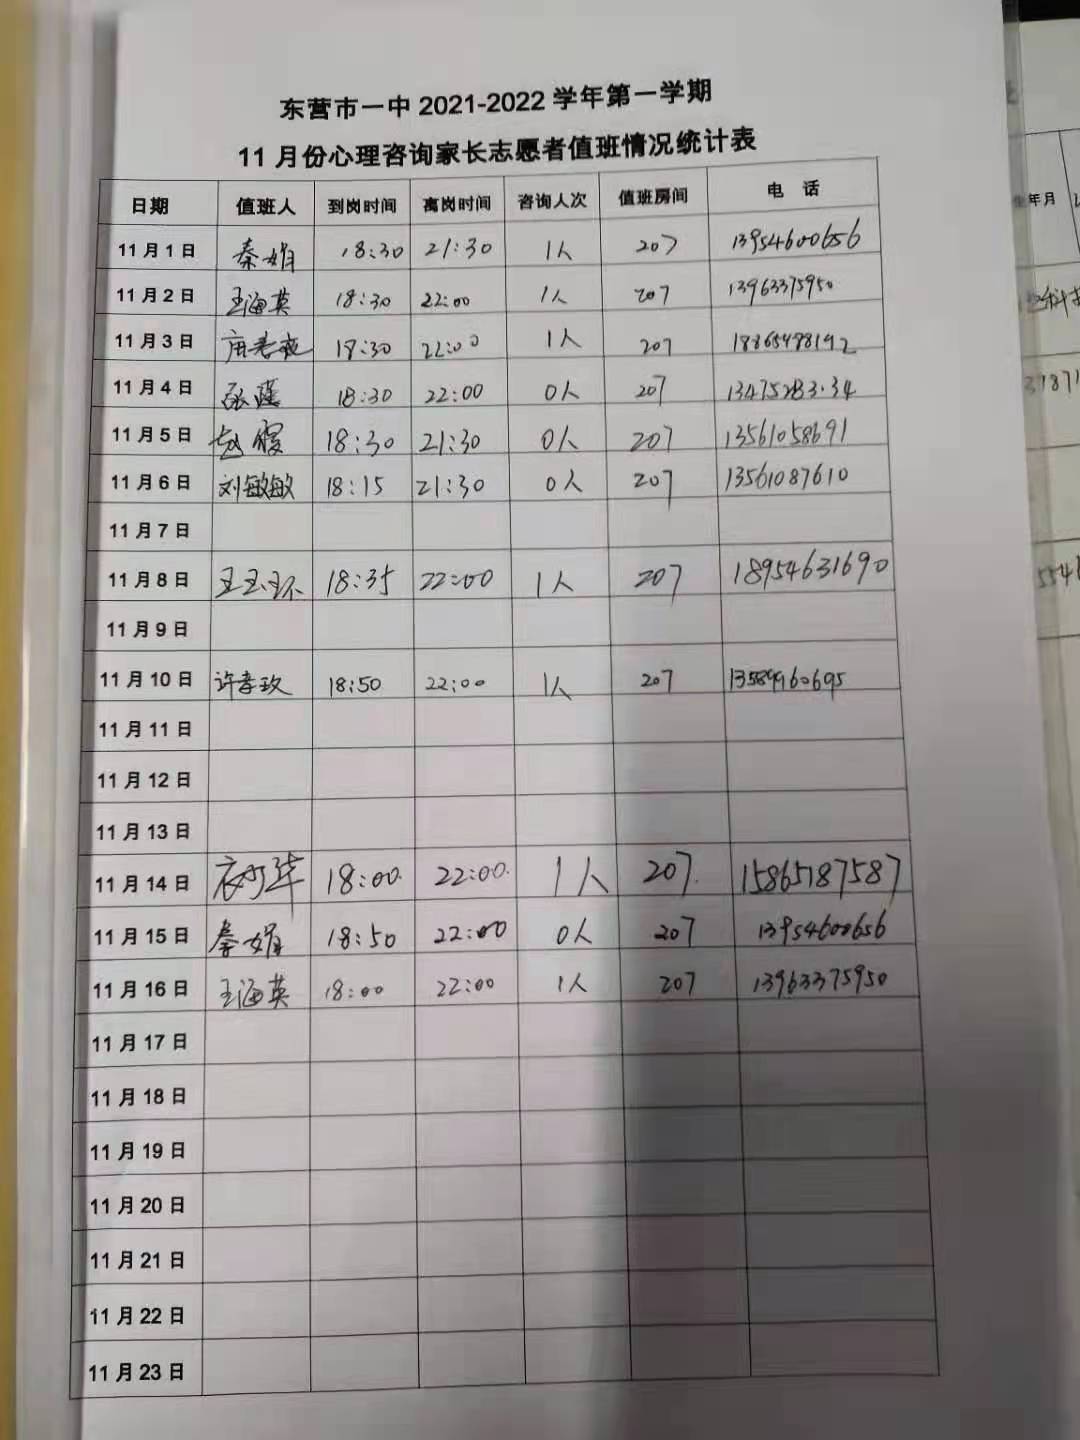 东营市一中 2021-2022 学年第一学期
11 月份心理咨询家长志愿者值班情况统计表
日期 值班人 到岗时间 离岗时间 咨询人次 值班房间 电 话
11 月 1 日 秦娟 18:30 21:30 1人 207 13954600656
11 月 2 日 王海英 18:30 22:00 1人 207 13963375950
11 月 3 日 18:30 22:00 1人 207
11 月 4 日 18:30 22:00 0人 207
11 月 5 日 赵霞 18:30 21:30 0人 207 13561058691
11 月 6 日 刘敏敏 18:15 21:30 0人 207 13561087610
11 月 7 日
11 月 8 日 王玉环 18:35 22:00 1人 207 18954631690
11 月 9 日
11 月 10 日 许孝玫 18:50 22:00 1人 207 13589960695
11 月 11 日
11 月 12 日
11 月 13 日
11 月 14 日 18:00. 22:00. 1人 207. 15865187587
11 月 15 日 秦娟 18:50 22:00 0人 207 13954600656
11 月 16 日 王海英 18:00 22:00 1人 207 13963375950
11 月 17 日
11 月 18 日
11 月 19 日
11 月 20 日
11 月 21 日
11 月 22 日
11 月 23 日
年月